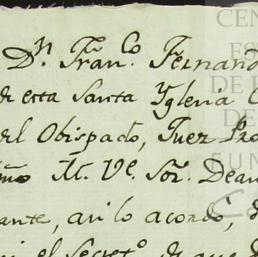 Dn. Franco. Fernand
de esta Santa Yglesia C
del Obispado, Juez Pro
Il. Ve. Sor. Dean
ante, asi lo acordó,
el Secreto. de que